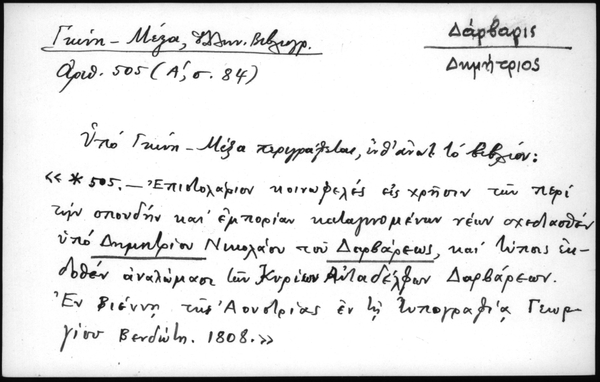 Γκίνη – Μέξα, Ἑλλην. Βιβλιογρ.
Δάρβαρις
Δημήτριος
ἀριθ. 505 (Α΄, σ. 84)
Ὑπό Γκίνη – Μέξα περιγράφεται, ἐνθ' ἀνωτ. τό βιβλίον:
«* 505. — Ἐπιστολάριον κοινωφελές εἰς χρῆσιν τῶν περί
τήν σπουδήν καί ἐμπορίαν καταγινομένων νέων σχεδιασθέν
ὑπό Δημητρίου Νικολάου τοῦ Δαρβάρεως, καί τύποις ἐκ-
δοθέν ἀναλώμασι τῶν Κυρίων Αὐταδέλφων Δαρβάρεων.
Ἐν Βιέννῃ τῆς Ἀουστρίας ἐν τῇ τυπογραφίᾳ Γεωρ-
γίου Βενδώτη. 1808.»